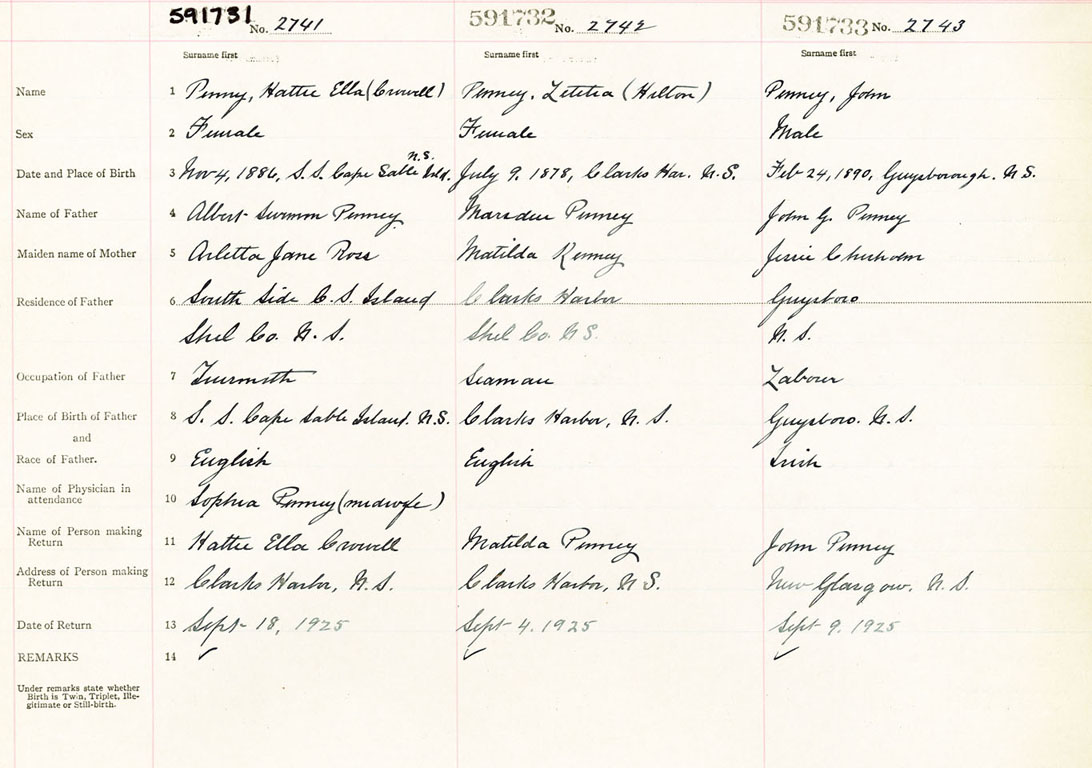 591731 No. 2741 591732 No. 2742 591733 No. 2743
Surname first Surname first Surname first
Name 1 Penny, Hattie Ella (Crowell) Penney, Letitia (Hilton) Penney, John
Sex 2 Female Female Male
N.S.
Date and Place of Birth 3 Nov 4, 1886, S. S. Cape Sable Isld. July 9, 1878, Clarks Har. N.S. Feb 24, 1890, Guysborough. N S.
Name of Father 4 Albert Penney Marsden Penney John G. Penney
Maiden name of Mother 5 Arletta Jane Ross Matilda Kenney Jessie Chisholm
Residence of Father 6 South Side C. S. Island Clarks Harbor Guysboro
Shel Co. N. S. Shel Co. N S. N. S.
Occupation of Father 7 Seaman Labour
Place of Birth of Father 8 S. S. Cape Sable Island. N.S. Clarks Harbor, N. S. Guysboro. N. S.
and
Race of Father. 9 English English Irish
Name of Physician in
attendance 10 Sophia Penney (midwife)
Name of Person making
Return 11 Hattie Ella Crowell Matilda Penney John Penney
Address of Person making
Return 12 Clarks Harbor, N. S. Clarks Harbor, N S. New Glasgow. N. S.
Date of Return 13 Sept- 18, 1925 Sept 4. 1925 Sept 9. 1925
REMARKS 14 ✓ ✓ ✓
Under remarks state whether
Birth is Twin, Triplet, Ille-
gitimate or Still-birth.